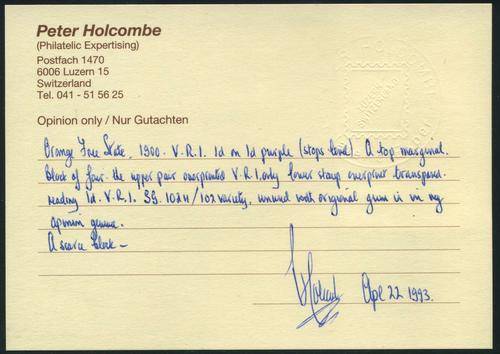 Peter Holcombe
(Philatelic Expertising)
Postfach 1470
6006 Luzern 15
Switzerland
Tel. 041 - 51 56 25
Opinion only / Nur Gutachten
Orange Free State. 1900. V.R.I. 1d on 1d purple (stops level). A top marginal
block of four. the upper pair overprinted V.R.I. only lower stamp overprint transposed
reading 1d. V.R.I. SG. 102w/102 variety. unused with original gum is in my
opinion genuine.
A scarce block -
Holcombe Apl 22 1993.